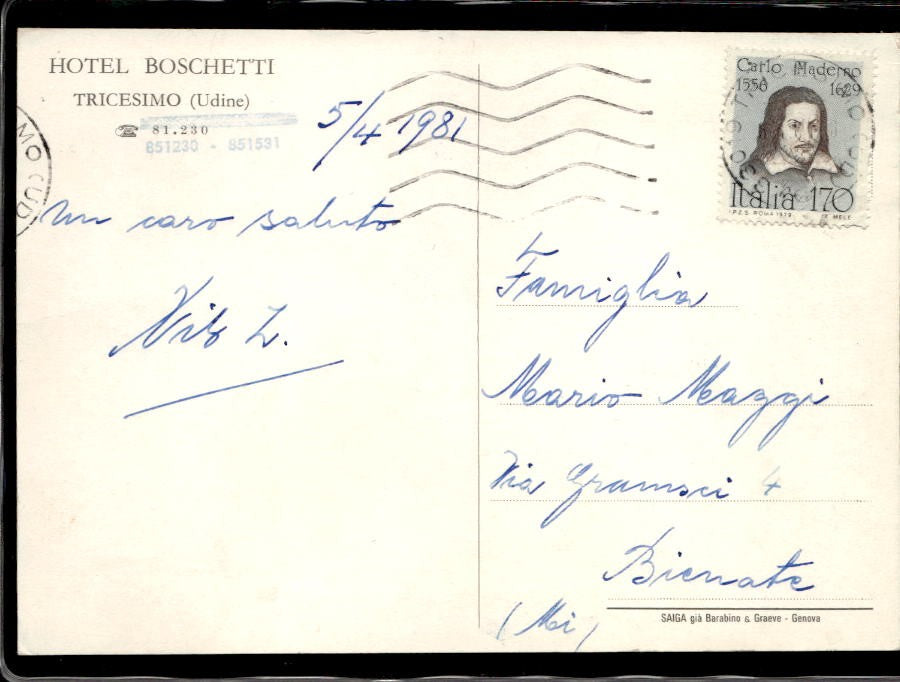 HOTEL BOSCHETTI
TRICESIMO (Udine)
☎ 81.230
851230 - 851531
5/4 1981
Un caro saluto
Famiglia
Mario Maggi
Via Gramsci 4
Bienate
(Mi)
SAIGA già Barabino & Graeve - Genova
Carlo Maderno
1556 1629
Italia 170
I.P.Z.S. ROMA 1979